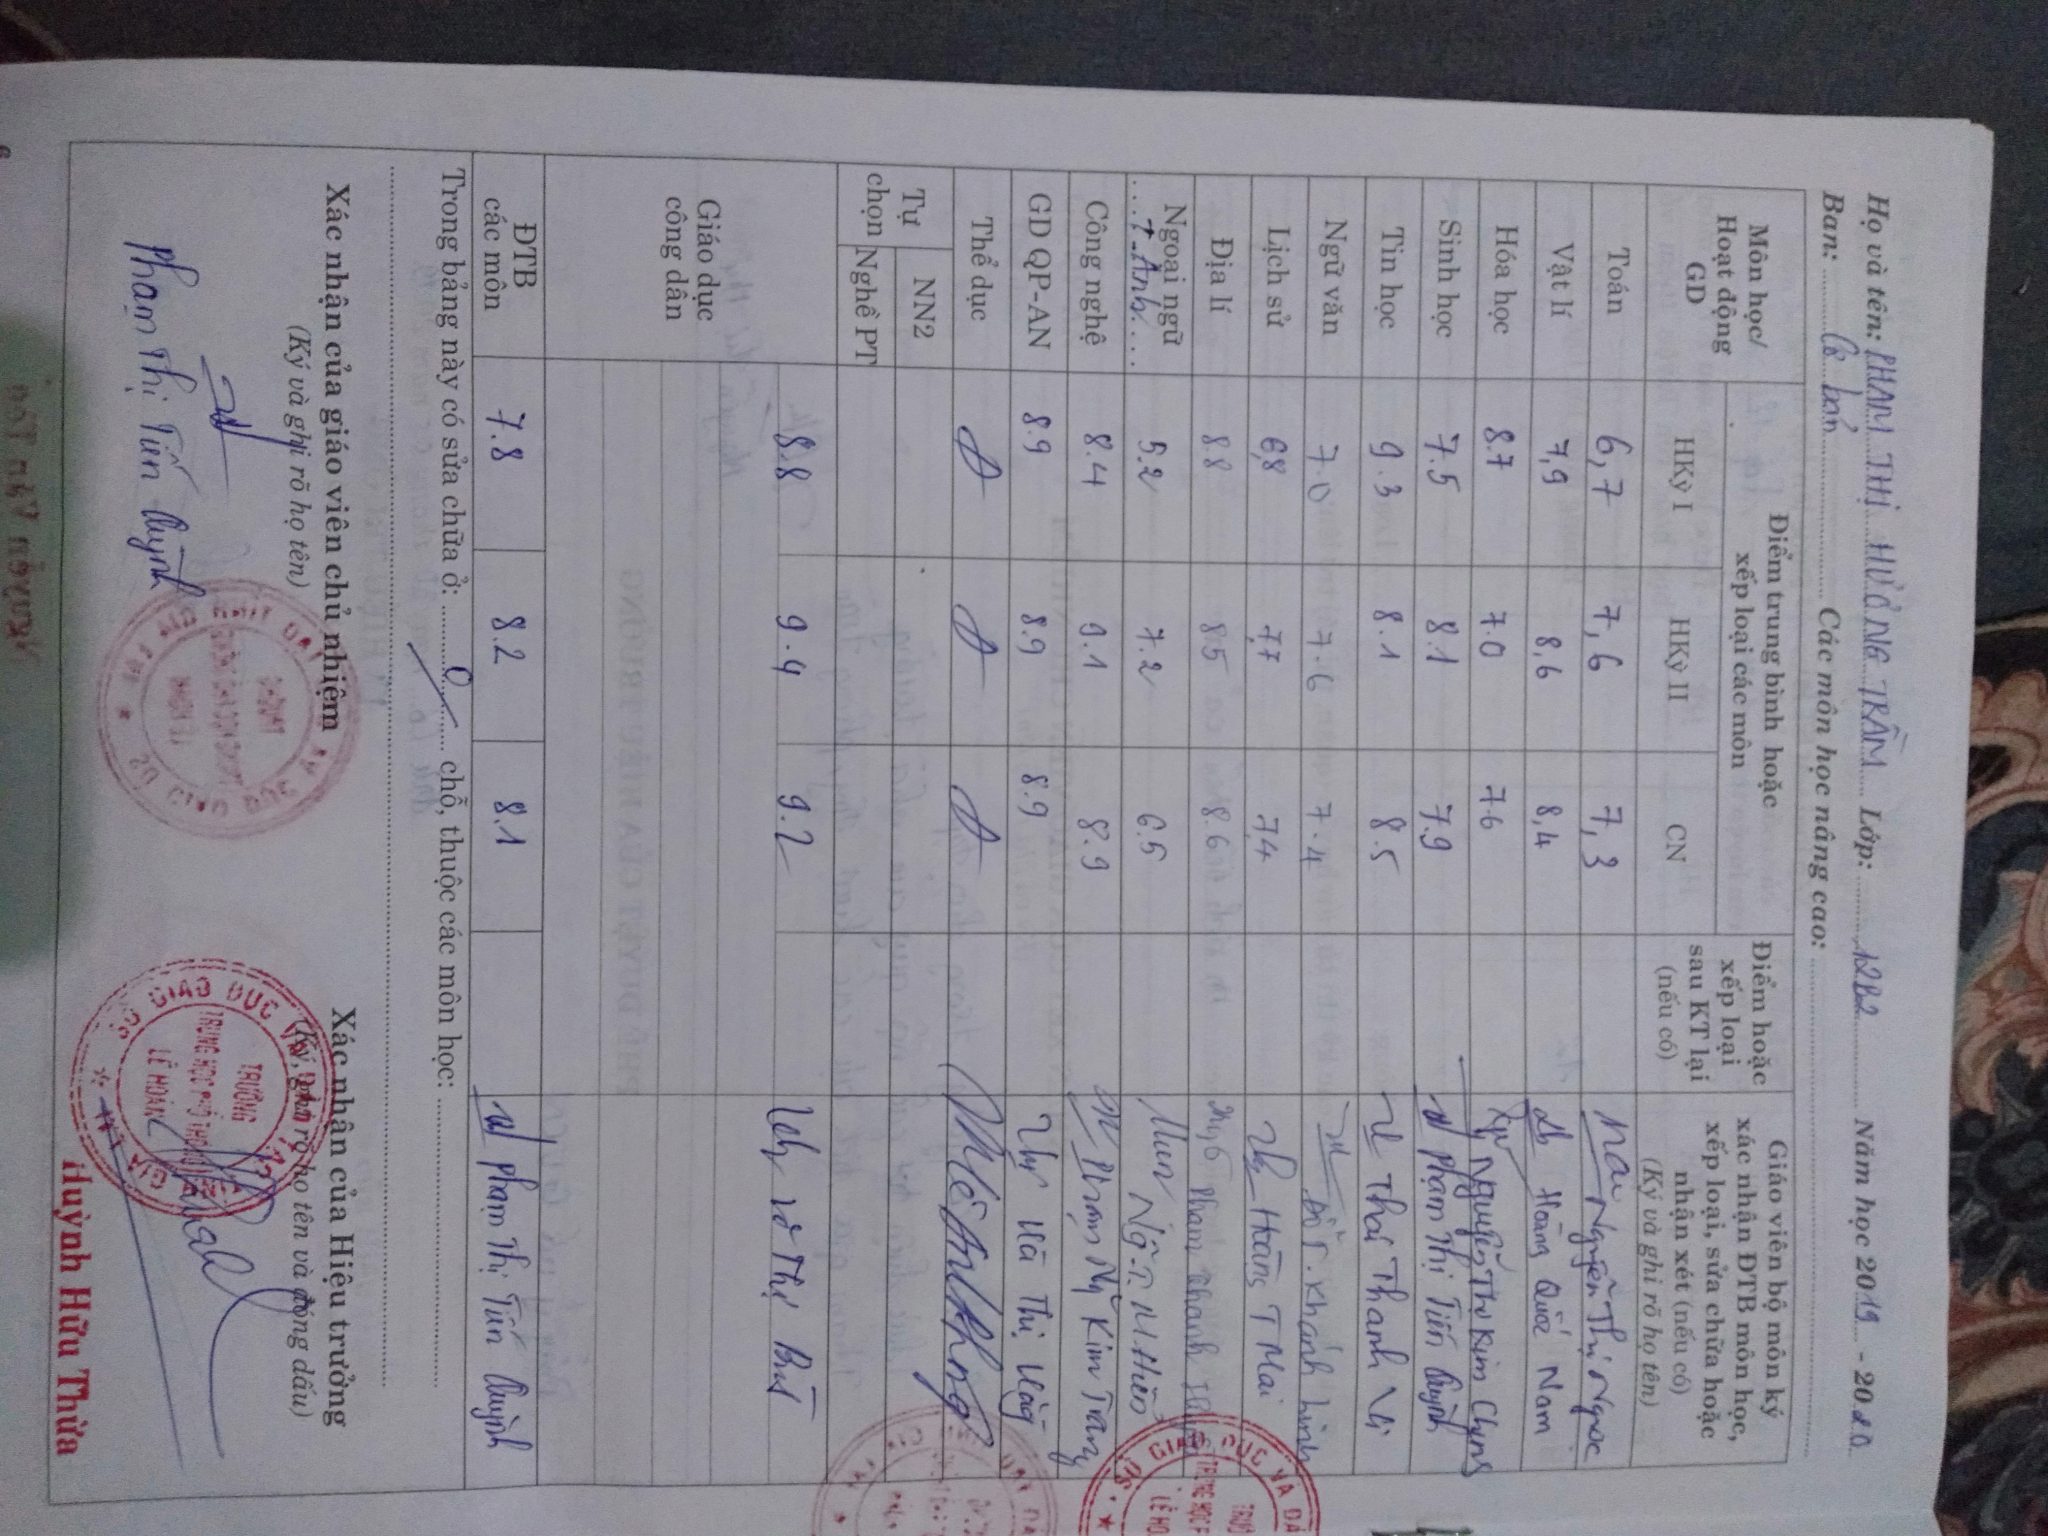 Họ và tên: PHẠM THỊ HƯƠNG TRẦM Lớp: 12B2 Năm học 2019 - 2020
Ban: Cơ bản Các môn học nâng cao:
Môn học/ Hoạt động GD
Điểm trung bình hoặc xếp loại các môn
HKỳ I HKỳ II CN
Điểm hoặc xếp loại sau KT lại (nếu có)
Giáo viên bộ môn ký xác nhận ĐTB môn học, xếp loại, sửa chữa hoặc nhận xét (nếu có)
(Ký và ghi rõ họ tên)
Toán 6,7 7,6 7,3 Nguyễn Thị Ngọc
Vật lí 7,9 8,6 8,4 Hoàng Quốc Nam
Hóa học 8.7 7.0 7.6 Nguyễn Thị Kim
Sinh học 7.5 8.1 7.9 Phạm Thị Tiến Quỳnh
Tin học 9.3 8.1 8.5 Thái Thanh Vi
Ngữ văn 7.0 7.6 7.4 Khánh Linh
Lịch sử 6,8 7,7 7,4 Hoàng T Mai
Địa lí 8.8 8.5 8.6 Phạm Thanh
Ngoại ngữ
...T.Anh... 5.2 7.2 6.5 Ngô T. M. Hiền
Công nghệ 8.4 9.1 8.9 Phạm Mỹ Kim Trang
GD QP-AN 8.9 8.9 8.9 Hà Thị
Thể dục Đ Đ Đ
Tự chọn NN2
Nghề PT
Giáo dục công dân 8.8 9.4 9.2 Võ Thị
ĐTB các môn 7.8 8.2 8.1 Phạm Thị Tiến Quỳnh
Trong bảng này có sửa chữa ở: 0 chỗ, thuộc các môn học:
Xác nhận của giáo viên chủ nhiệm
(Ký và ghi rõ họ tên)
Phạm Thị Tiến Quỳnh
Xác nhận của Hiệu trưởng
(Ký, ghi rõ họ tên và đóng dấu)
SỞ GIÁO DỤC VÀ ĐÀO TẠO
GIA LAI
TRƯỜNG
TRUNG HỌC PHỔ THÔNG
LÊ HOÀN
Huỳnh Hữu Thừa
6